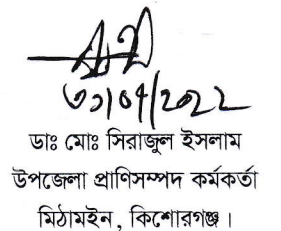 ডাঃ মোঃ সিরাজুল ইসলাম
উপজেলা প্রাণিসম্পদ কর্মকর্তা
মিঠামইন, কিশোরগঞ্জ।